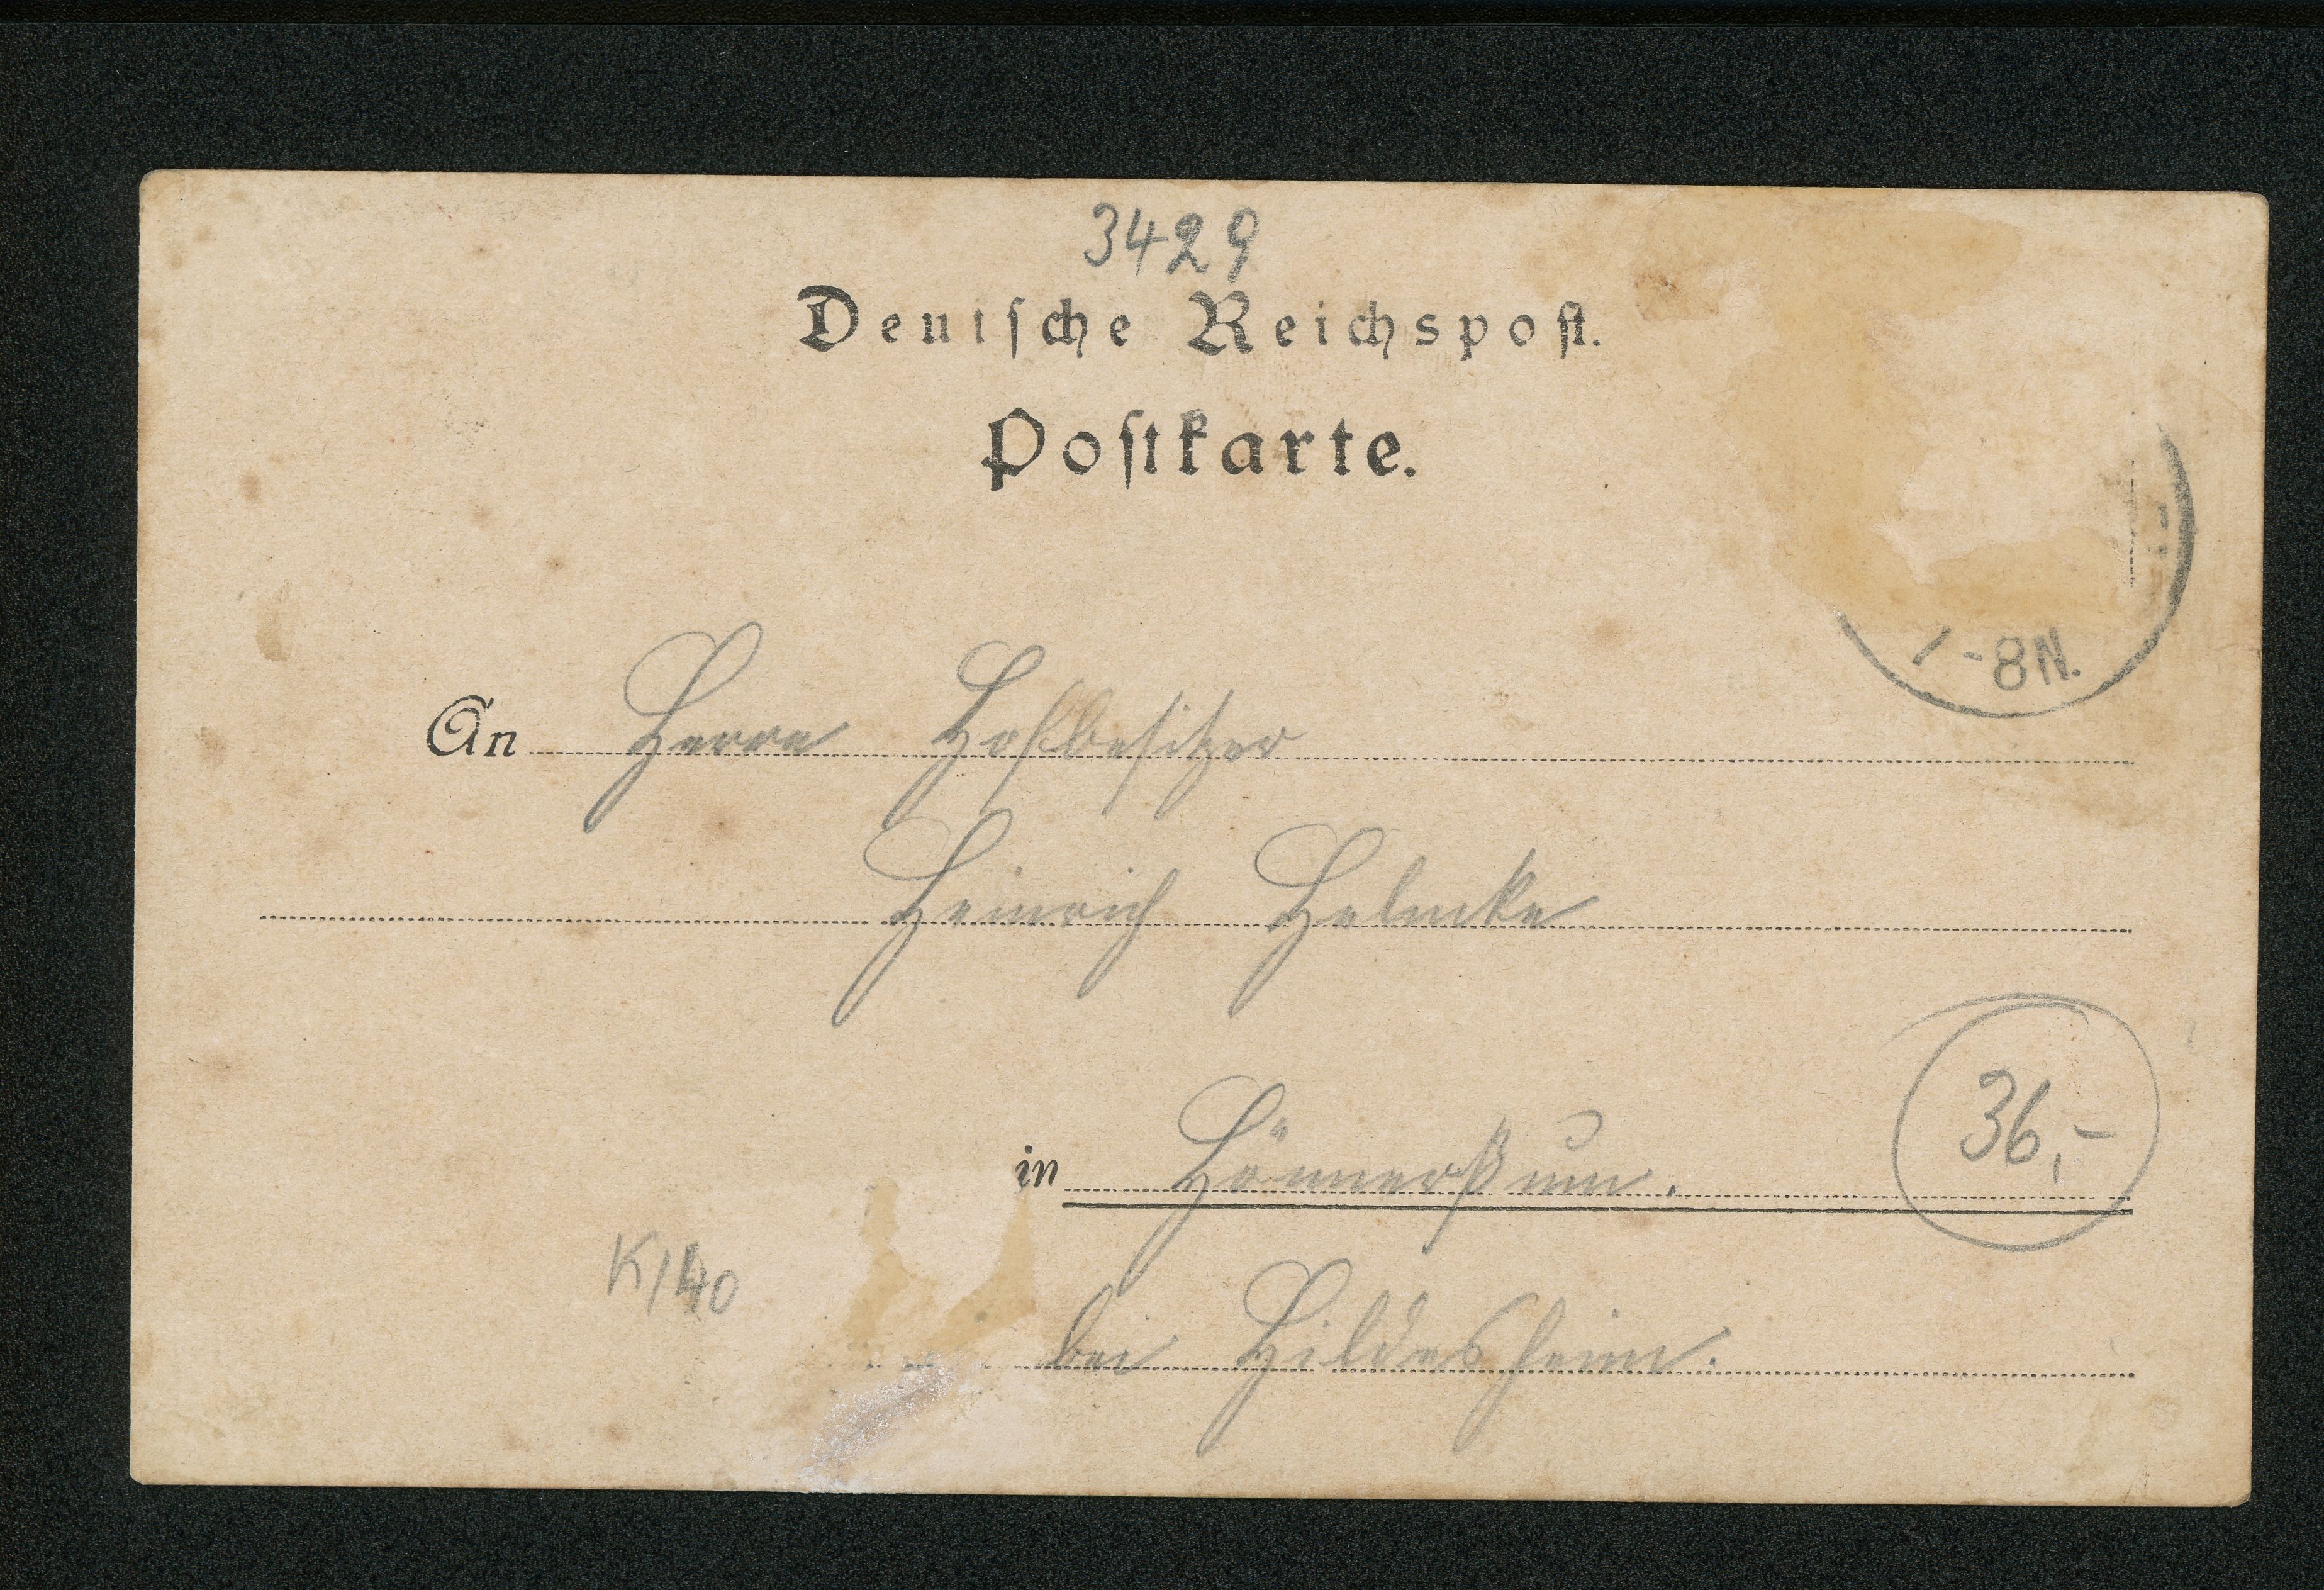 3429
Deutsche Reichspost.
Postkarte.
-8N.
An Herrn Hofbesitzer
Heinrich Helmke
in Hönnersum.
36,-
K/40
bei Hildesheim.